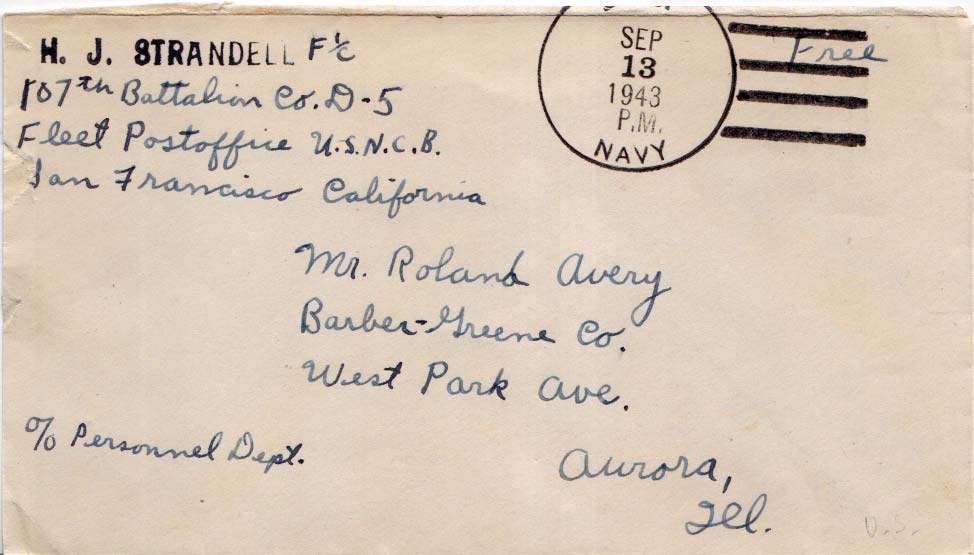 H. J. STRANDELL F 1/c
107th Battalion Co. D-5
Fleet Postoffice U.S.N.C.B.
San Francisco California
SEP
13
1943
P.M.
NAVY
Free
Mr. Roland Avery
Barber-Greene Co.
West Park Ave.
c/o Personnel Dept.
Aurora,
Ill.
U.S.